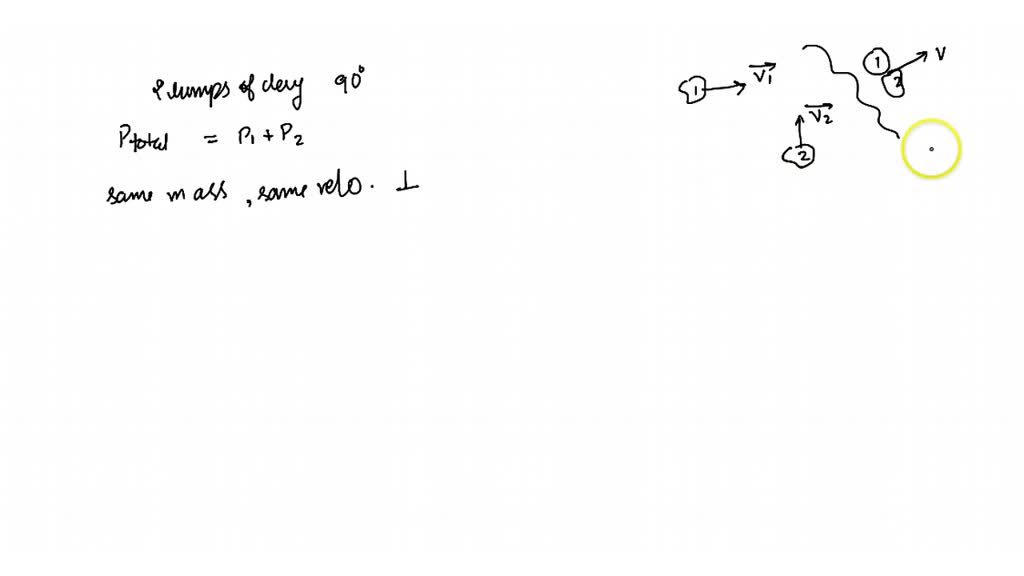 2 lumps of clay 90°
Ptotal = P1 + P2
same mass, same velo. ⊥
1 V1
2 V2
1 2 V